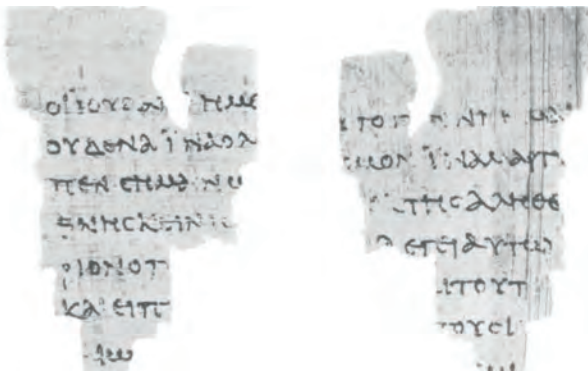 ΟΙ ΪΟΥΔΑΙ ΗΜΕ
ΟΥΔΕΝΑ ΪΝΑ Ο Λ
ΠΕΝ ϹΗΜΑΙΝΩ
ΘΝΗϹΚΕΙΝ ΙϹ
ΡΙΟΝ Ο Π
ΚΑΙ ΕΙΠ
ΑΙΩ
ΤΟ Γ Ε ΝΝΗΜΑΙ
ϹΜΟΝ ΪΝΑ ΜΑΡΤΥ
ΤΗϹ ΑΛΗΘΕ
ΛΕΓΕΙ ΑΥΤΩ
ΑΙ ΤΟΥΤ
ΤΟΥϹ Ι